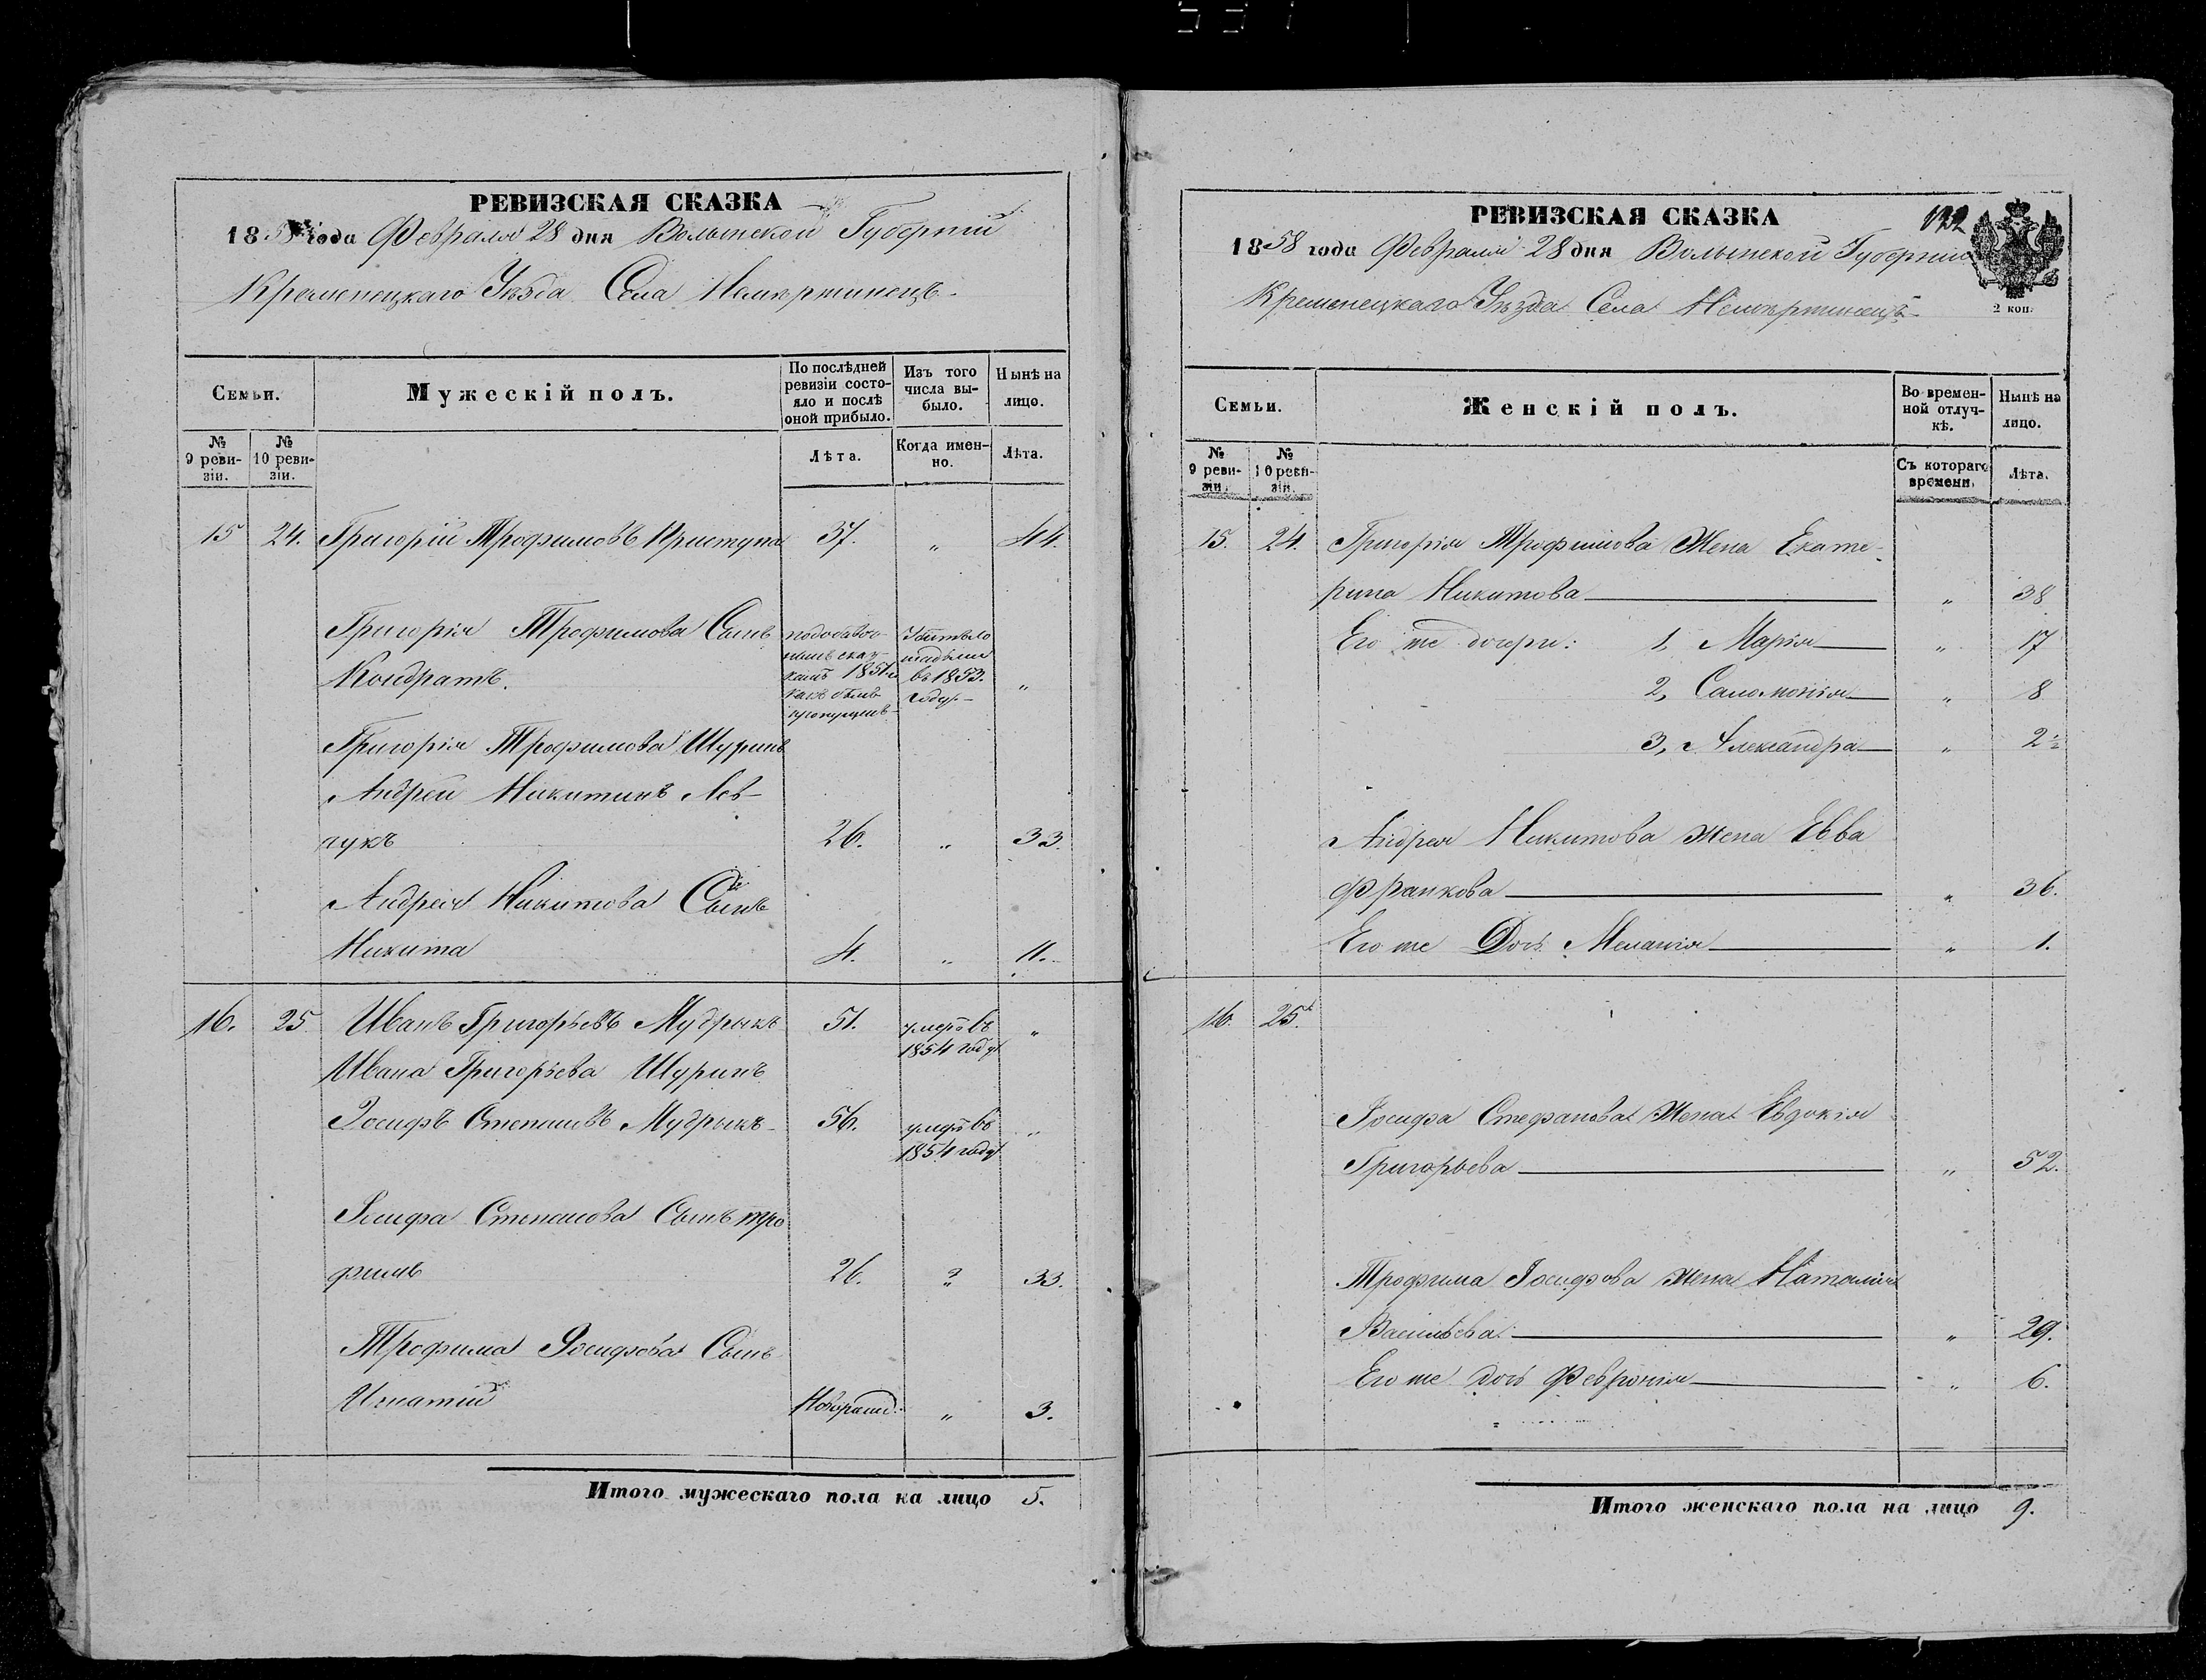 РЕВИЗСКАЯ СКАЗКА
1858 года Февраля 28 дня Волынской Губерніи
Кременецкаго Уѣзда Села
Семьи.
Мужескій полъ.
По послѣдней ревизіи состо-
яло и послѣ оной прибыло.
Изъ того числа вы-
было.
Нынѣ на лицо.
№ 9 реви-
зіи.
№ 10 реви-
зіи.
Лѣта.
Когда имен-
но.
Лѣта.
15 24. Григорій Трофимовъ Приступа 37. „ 44.
Григорія Трофимова Сынъ
Кондратъ. „
1851
въ 1853.
году
Григорія Трофимова Шуринъ
Андрей Никитинъ Лев-
чукъ 26. „ 33.
Андрея Никитова Сынъ
Никита 4. „ 11.
16. 25 Иванъ Григорьевъ Мудрыкъ 51. умеръ въ „
1854 году
Ивана Григорьева Шуринъ
Іосифъ Степановъ Мудрыкъ 56. умеръ въ „
1854 году
Іосифа Степанова Сынъ Тро
фимъ 26. „ 33.
Трофима Іосифова Сынъ
Игнатій Новорожд. „ 3.
Итого мужескаго пола на лицо 5.
РЕВИЗСКАЯ СКАЗКА
132
1858 года Февраля 28 дня Волынской Губерніи
Кременецкаго Уѣзда Села
2 коп.
Семьи.
Женскій полъ.
Во времен-
ной отлуч-
кѣ.
Нынѣ на лицо.
№ 9 реви-
зіи.
№ 10 реви-
зіи.
Съ котораго
времени.
Лѣта.
15. 24. Григорія Трофимова Жена Екате-
рина Никитова „ 38
Его же дочери: 1, Марія „ 17
2, Саломонія „ 8
3, Александра „ 2½
Андрея Никитова жена Евва
Франкова „ 36.
Его же Дочь Меланія „ 1.
16. 25.
Іосифа Стефанова Жена Евдокія
Григорьева „ 52.
Трофима Іосифова жена Наталія
Васильева „ 29.
Его же дочь Февронія „ 6.
Итого женскаго пола на лицо 9.